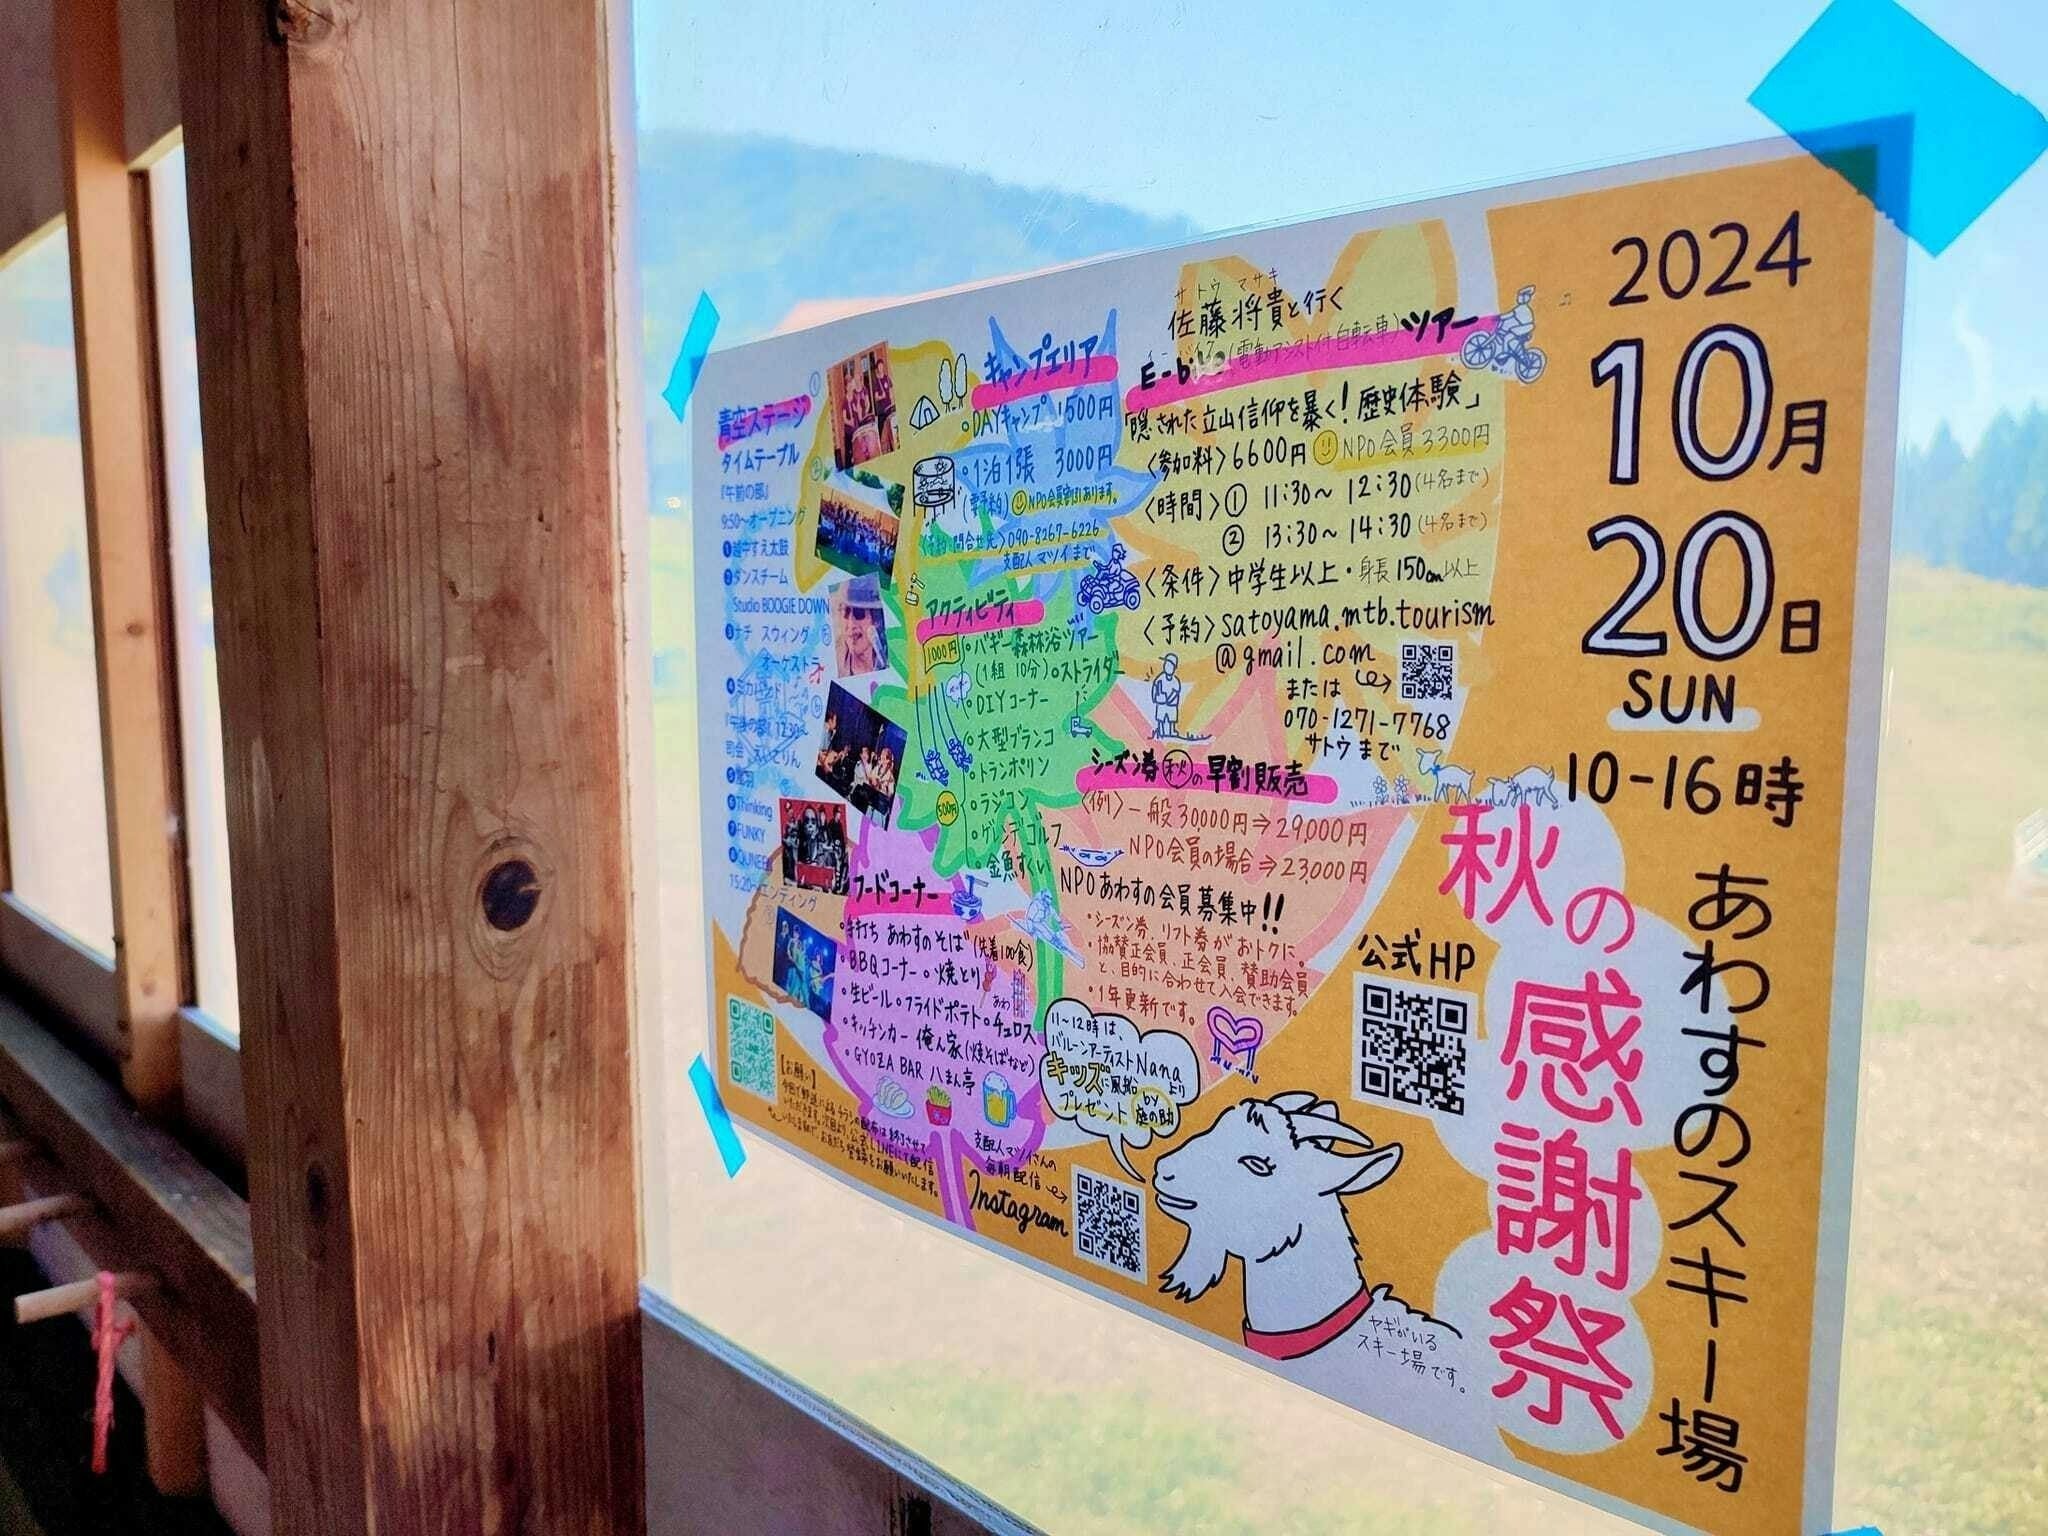 2024
10月
20日
SUN
10-16時
あわすのスキー場
秋の感謝祭
公式HP
ヤギがいる
スキー場です。
サトウ マサキ
佐藤将貴と行く
E-bike(電動アシスト付自転車)ツアー
「隠された立山信仰を暴く!歴史体験」
〈参加料〉6600円 NPO会員3300円
〈時間〉① 11:30~12:30(4名まで)
② 13:30~14:30(4名まで)
〈条件〉中学生以上・身長150cm以上
〈予約〉satoyama.mtb.tourism
@gmail.com
または
070-1271-7768
サトウまで
シーズン券秋の早割販売
〈例〉一般30,000円⇒29,000円
NPO会員の場合⇒23,000円
NPOあわすの会員募集中!!
・シーズン券、リフト券がおトクに。
・協賛正会員、正会員、賛助会員
と、目的に合わせて入会できます。
・1年更新です。
11~12時は、
バルーンアーティストNanaより
キッズに風船
プレゼント by 庭の助
キャンプエリア
・DAYキャンプ 1500円
・1泊1張 3000円
(要予約) NPO会員割引あります。
〈予約・問合せ先〉090-8267-6226
支配人マツイまで
アクティビティ
1000円
・バギー森林浴ツアー
(1組 10分)・ストライダー
・DIYコーナー
・大型ブランコ
・トランポリン
500円
・ラジコン
・ゲレンデゴルフ
・金魚すくい
フードコーナー
・手打ち あわすのそば(先着100食)
・BBQコーナー・焼とり
・生ビール・フライドポテト・チュロス
・キッチンカー 俺ん家(焼そばなど)
・GYOZA BAR 八まん亭
支配人マツイさんの
毎朝配信
Instagram
青空ステージ
タイムテーブル
『午前の部』
9:50~オープニング
❶越中すえ太鼓
❷ダンスチーム
Studio BOOGIE DOWN
❸ナチ スウィング
オーケストラ
『午後の部』12:30~
❻Thinking
❼FUNKY
15:20~エンディング
【お願い】